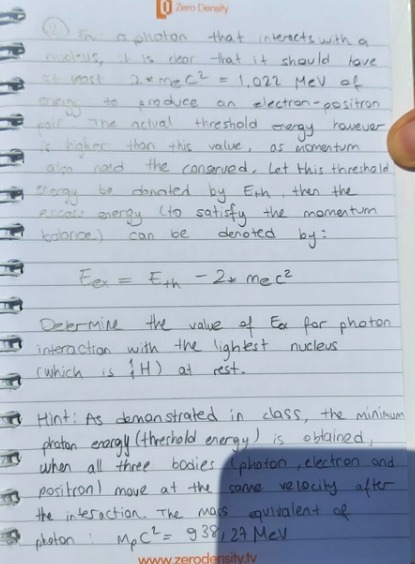 Zero Density
2) For a photon that interacts with a
nucleus, it is clear that it should have
at least 2*mec² = 1,022 MeV of
energy to produce an electron-positron
pair. The actual threshold energy however
is higher than this value, as momentum
also need the conserved. Let this threshold
energy be denoted by Eth, then the
excess energy (to satisfy the momentum
balance) can be denoted by:
Eex = Eth - 2* mec²
Determine the value of Eex for photon
interaction with the lightest nucleus
(which is ¹₁H) at rest.
Hint: As demonstrated in class, the minimum
photon energy (threshold energy) is obtained,
when all three bodies (photon, electron and
positron) move at the same velocity after
the interaction. The mass equivalent of
photon: MpC² = 938,27 MeV
www.zerodensity.tv